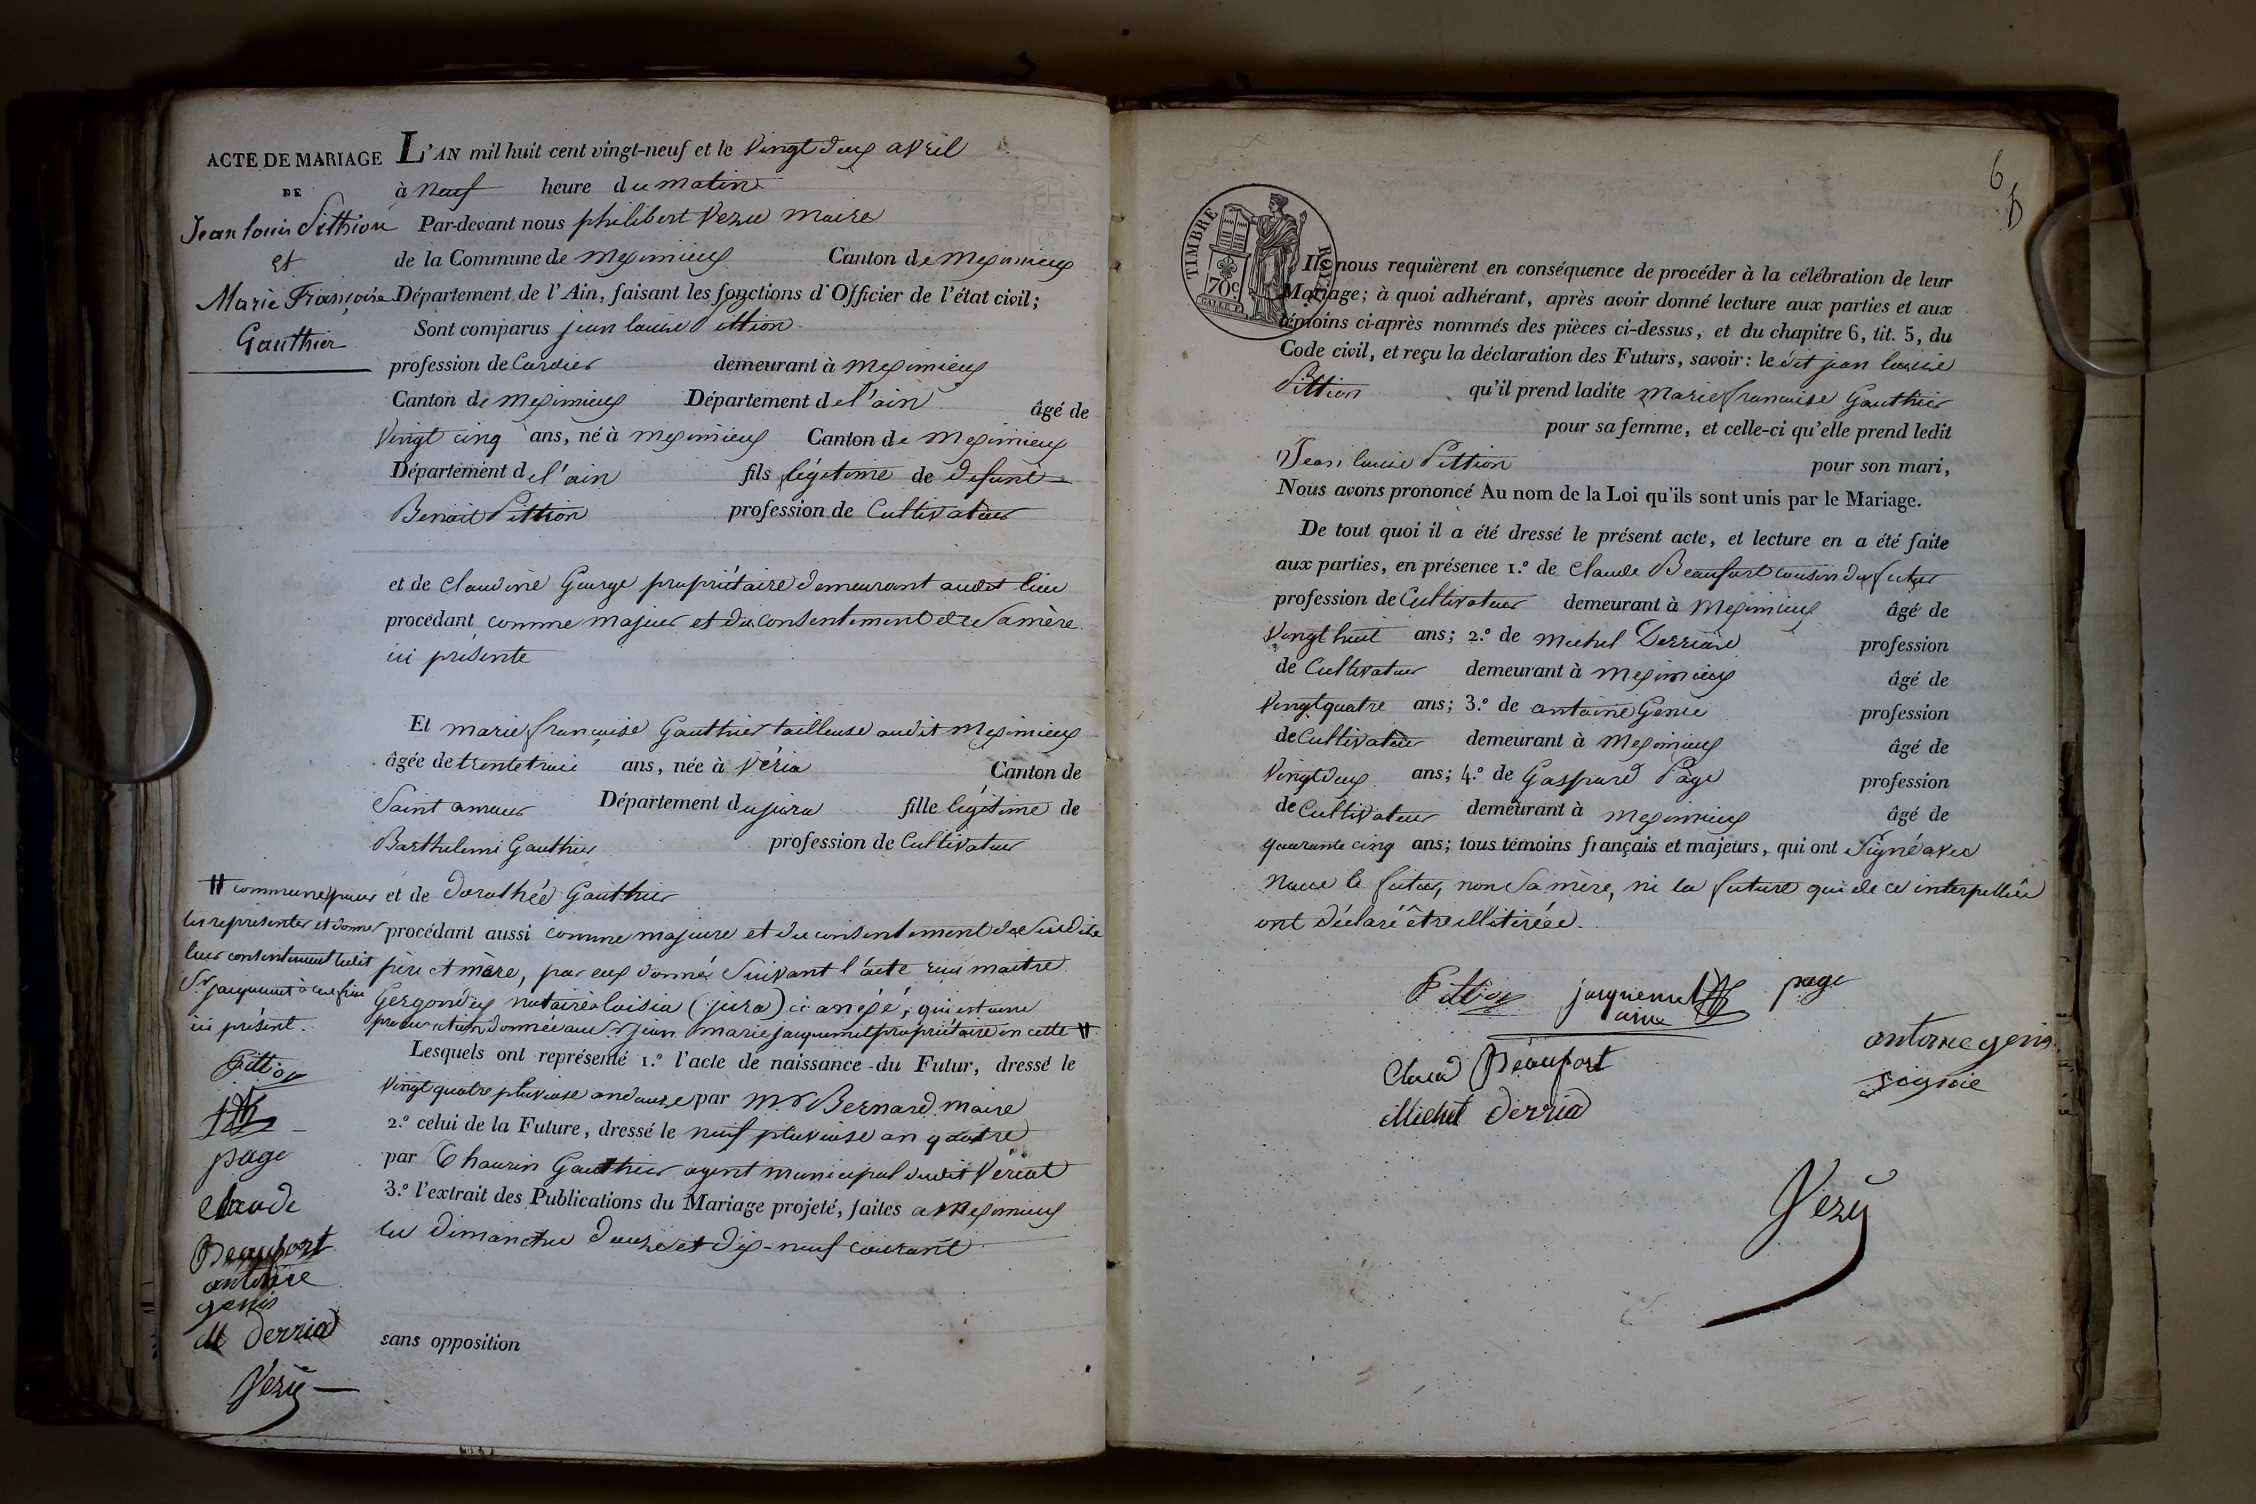 ACTE DE MARIAGE
DE
Jean louis Pithion
et
Marie Françoise
Gauthier
L'AN mil huit cent vingt-neuf et le vingt deux avril
à neuf heure du matin
Par-devant nous philibert Vezu maire
de la Commune de meximieux Canton de meximieux
Département de l'Ain, faisant les fonctions d'Officier de l'état civil;
Sont comparus jean louise Pittion
profession de Cordier demeurant à meximieux
Canton de meximieux Département del'ain âgé de
vingt cinq ans, né à meximieux Canton de meximieux
Département del'ain fils légitime de defunt
Benoit Pittion profession de Cultivateur
et de Claudine George propriétaire demeurant audit lieu
procédant comme majeur et du consentement de Sa mère
ici présente
Et marie françoise Gauthier tailleuse audit meximieux
âgée de trente trois ans, née à véria Canton de
Saint amour Département dujura fille légitime de
Barthelemi Gauthier profession de Cultivateur
et de Dorothée Gauthier
procédant aussi comme majeure et du consentement de Sesdits
père et mère, par eux donné Suivant l'acte reçu maitre
notaire à loisia (jura) ci anéxé, qui est une
procuration donnée au Sr jean marie jacquemet propriétaire en cette #
# commune pour
les représenter et donner
leur consentement ledit
Sr jacquemet à ces fins
ici présent.
Lesquels ont représenté 1.º l'acte de naissance du Futur, dressé le
vingt quatre pluviose an douze par mr Bernard maire
2.º celui de la Future, dressé le neuf pluviose an quatre
par Thaurin Gauthier agent municipal dudit Vériat
3.º l'extrait des Publications du Mariage projeté, faites a meximieux
les dimanches douze et dix-neuf courant
sans opposition
Pittion
page
claude
Beaufort
antoine
genis
M Derriad
Vezu
6
TIMBRE ROYAL
70c
Ils nous requièrent en conséquence de procéder à la célébration de leur
Mariage; à quoi adhérant, après avoir donné lecture aux parties et aux
témoins ci-après nommés des pièces ci-dessus, et du chapitre 6, tit. 5, du
Code civil, et reçu la déclaration des Futurs, savoir: ledit jean louise
Pittion qu'il prend ladite marie françoise Gauthier
pour sa femme, et celle-ci qu'elle prend ledit
Jean louise Pittion pour son mari,
Nous avons prononcé Au nom de la Loi qu'ils sont unis par le Mariage.
De tout quoi il a été dressé le présent acte, et lecture en a été faite
aux parties, en présence 1.º de Claude Beaufort cousin du futur
profession de Cultivateur demeurant à meximieux âgé de
vingt huit ans; 2.º de michel Derriare profession
de Cultivateur demeurant à meximieux âgé de
vingt quatre ans; 3.º de antoine Genie profession
de Cultivateur demeurant à meximieux âgé de
vingt deux ans; 4.º de Gaspard Page profession
de Cultivateur demeurant à meximieux âgé de
quarante cinq ans; tous témoins français et majeurs, qui ont Signé avec
nous le futur, non Sa mère, ni la future qui de ce interpellée
ont déclaré être illitérée.
Pittion jacquemet page
aine
antoine genis
Claud Beaufort
Michel Derriad
Vezu